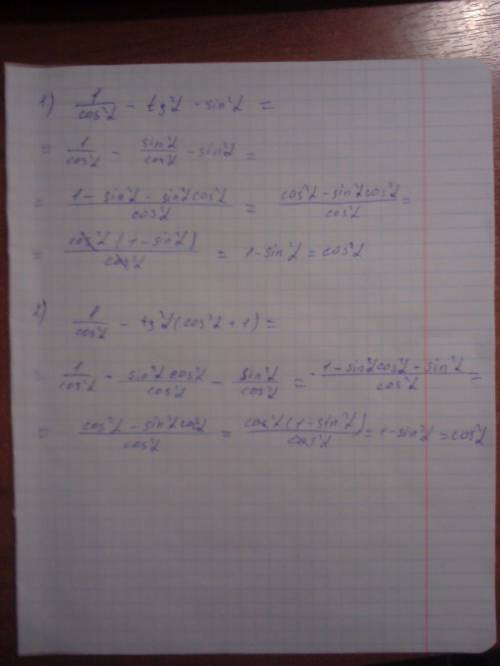 1) 1/cos²α − tg²α − sin²α =
= 1/cos²α − sin²α/cos²α − sin²α =
= (1 − sin²α − sin²α cos²α)/cos²α = (cos²α − sin²α cos²α)/cos²α =
= cos²α (1 − sin²α)/cos²α = 1 − sin²α = cos²α
2) 1/cos²α − tg²α (cos²α + 1) =
= 1/cos²α − sin²α cos²α/cos²α − sin²α/cos²α = (1 − sin²α cos²α − sin²α)/cos²α =
= (cos²α − sin²α cos²α)/cos²α = cos²α (1 − sin²α)/cos²α = 1 − sin²α = cos²α